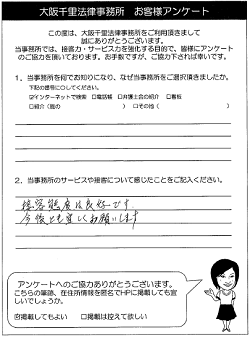 大阪千里法律事務所　お客様アンケート
この度は、大阪千里法律事務所をご利用頂きまして
誠にありがとうございます。
当事務所では、接客力・サービス力を強化する目的で、皆様にアンケート
のご協力を頂いております。お手数ですが、ご協力下されば幸いです。
1．当事務所を何でお知りになり、なぜ当事務所をご選択頂きましたか。
下記の番号に○してください。
☑インターネットで検索　□電話帳　□弁護士会の紹介　□看板
□紹介（誰の　　　）　□その他（　　　）
2．当事務所のサービスや接客について感じたことをご記入ください。
接客態度は良好です
今後とも宜しくお願いします
アンケートへのご協力ありがとうございます。
こちらの筆跡、在住所情報を匿名でHPに掲載しても宜
しいでしょうか。
☑掲載してもよい　□掲載は控えて欲しい